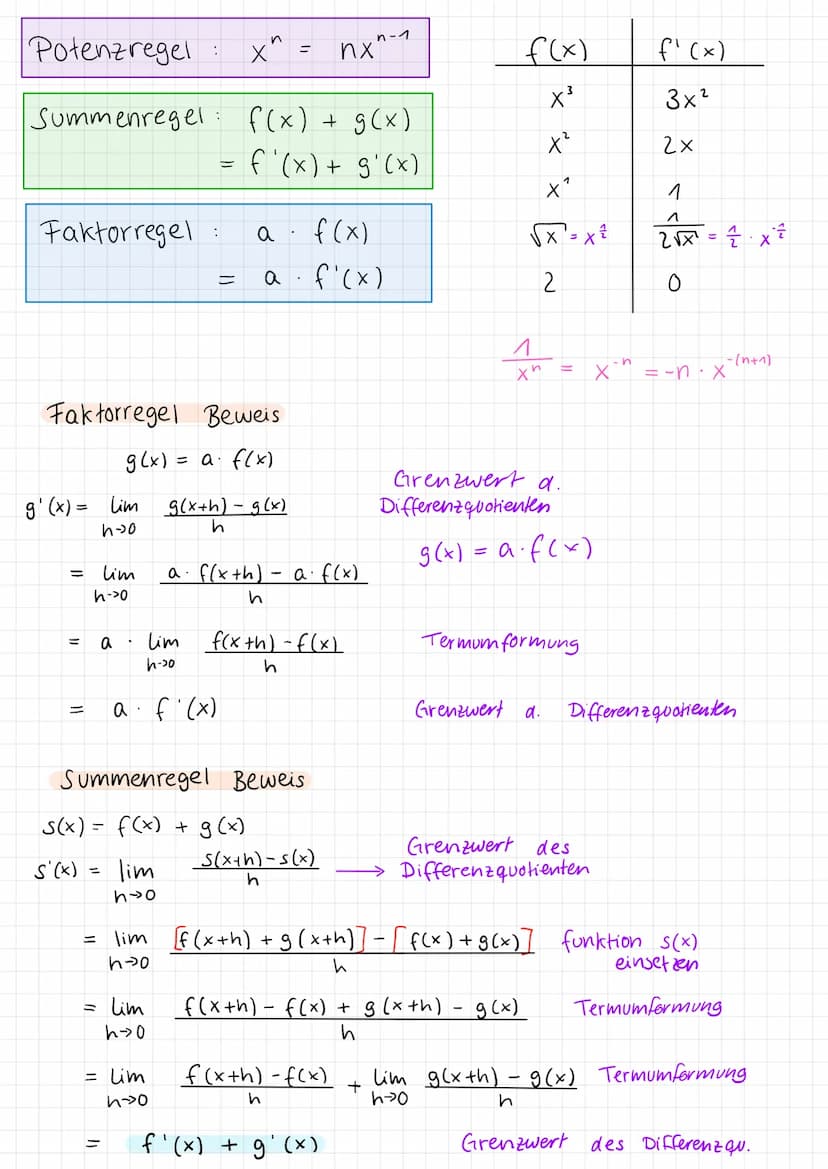 Potenzregel : xⁿ = nxⁿ⁻¹
Summenregel : f(x) + g(x)
= f'(x) + g'(x)
Faktorregel : a · f(x)
= a · f'(x)
f(x) | f'(x)
x³ | 3x²
x² | 2x
x¹ | 1
√x = x^(1/2) | 1/(2√x) = 1/2 · x^(-1/2)
2 | 0
1/xⁿ = x⁻ⁿ = -n · x^-(n+1)
Faktorregel Beweis
g(x) = a · f(x)
g'(x) = lim h→0 (g(x+h) - g(x))/h Grenzwert d. Differenzquotienten
g(x) = a · f(x)
= lim h->0 (a · f(x+h) - a · f(x))/h
= a · lim h->0 (f(x+h) - f(x))/h Termumformung
= a · f'(x) Grenzwert d. Differenzquotienten
Summenregel Beweis
s(x) = f(x) + g(x)
s'(x) = lim h→0 (s(x+h) - s(x))/h → Grenzwert des Differenzquotienten
= lim h→0 ([f(x+h) + g(x+h)] - [f(x) + g(x)])/h funktion s(x) einsetzen
= lim h→0 (f(x+h) - f(x) + g(x+h) - g(x))/h Termumformung
= lim h→0 (f(x+h) - f(x))/h + lim h→0 (g(x+h) - g(x))/h Termumformung
= f'(x) + g'(x) Grenzwert des Differenzqu.